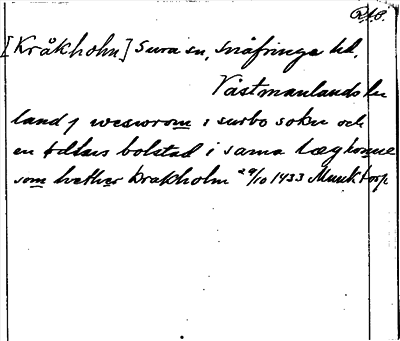 RAP.
[Kråkholm] Sura sn, Snäfringe hd,
Västmanlands län
land j wesworom i surbo sokn och
en öllars bolstad i sama læghomne
som hether krakholm 29/10 1433 Munktorp